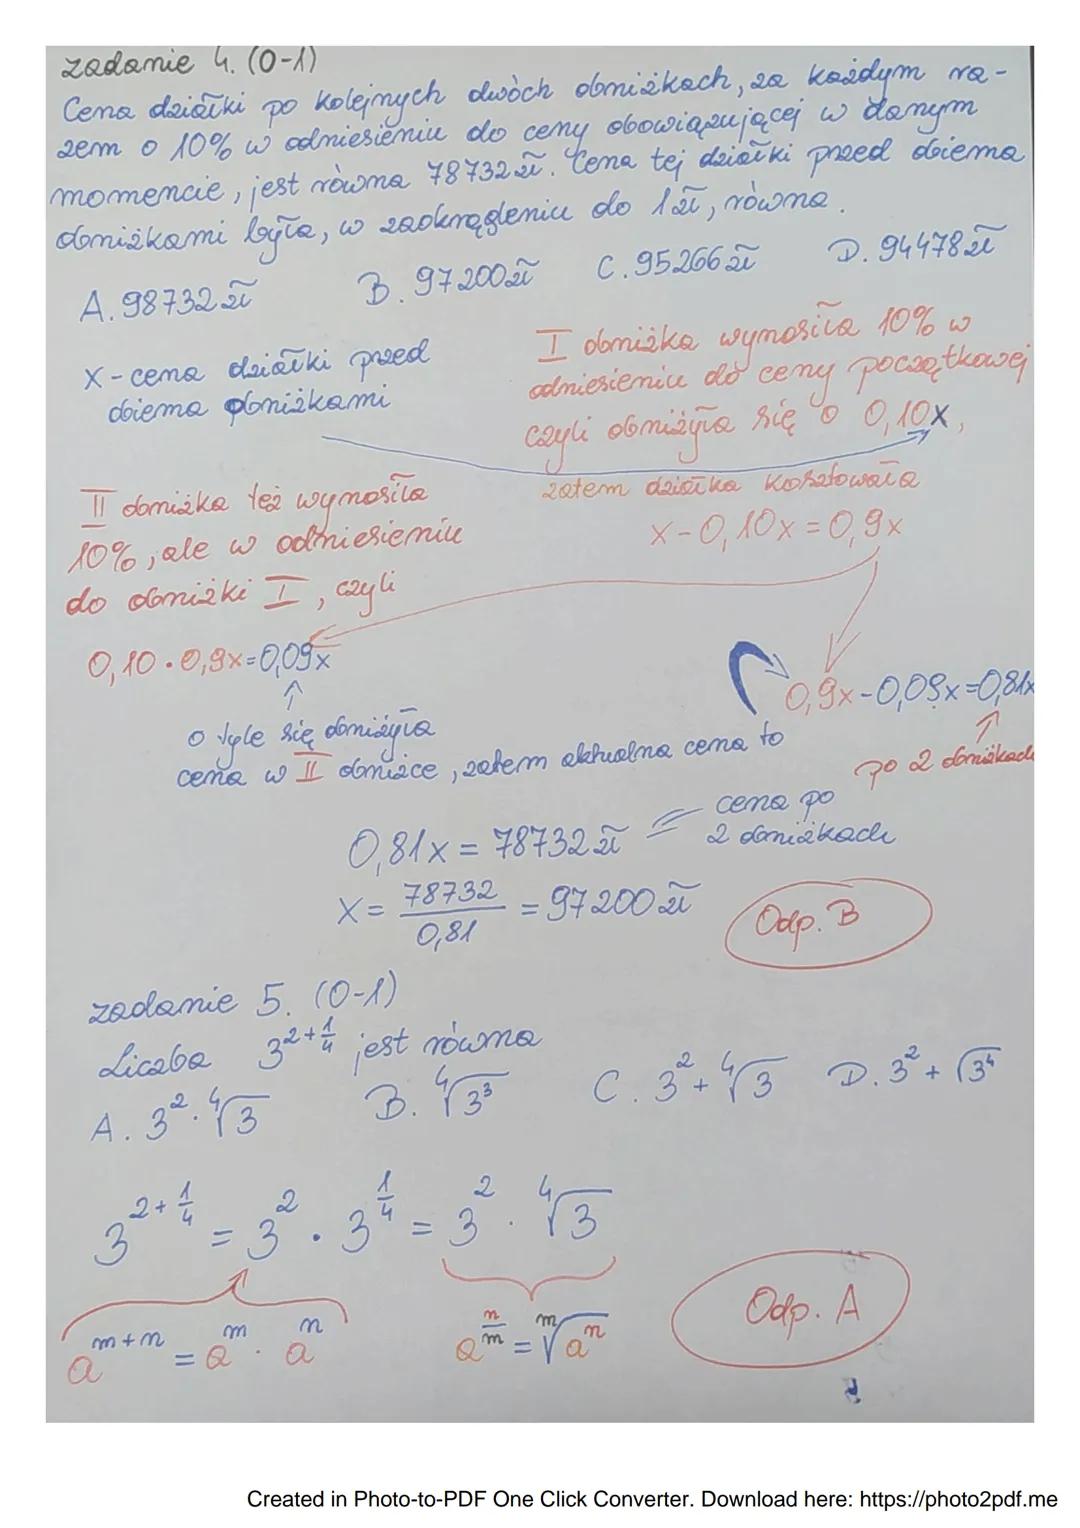 zadanie 4. (0-1)
Cena działki po kolejnych dwóch obniżkach, za każdym ra-
zem o 10% w odniesieniu do ceny obowiązującej w danym
momencie, jest równa 78732 zł. Cena tej działki przed dwiema
obniżkami była, w zaokrągleniu do 1 zł, równa.
A. 98732 zł B. 97200 zł C. 95266 zł D. 94478 zł
x - cena działki przed
dwiema obniżkami
I obniżka wynosiła 10% w
odniesieniu do ceny początkowej
czyli obniżyła się o 0,10x,
zatem działka kosztowała
x - 0,10x = 0,9x
II obniżka też wynosiła
10%, ale w odniesieniu
do obniżki I, czyli
0,10 · 0,9x = 0,09x
0,9x - 0,09x = 0,81x
o tyle się obniżyła
cena w II obniżce, zatem aktualna cena to
po 2 obniżkach
0,81x = 78732 zł
cena po
2 obniżkach
x = 78732/0,81 = 97200 zł
Odp. B
zadanie 5. (0-1)
Liczba 3^(2+1/4) jest równa
A. 3² · ⁴√3 B. ⁴√3³ C. 3² + ⁴√3 D. 3² + √3⁴
3^(2+1/4) = 3² · 3^(1/4) = 3² · ⁴√3
a^(m+n) = a^m · a^n
a^(n/m) = ᵐ√aⁿ
Odp. A
Created in Photo-to-PDF One Click Converter. Download here: https://photo2pdf.me